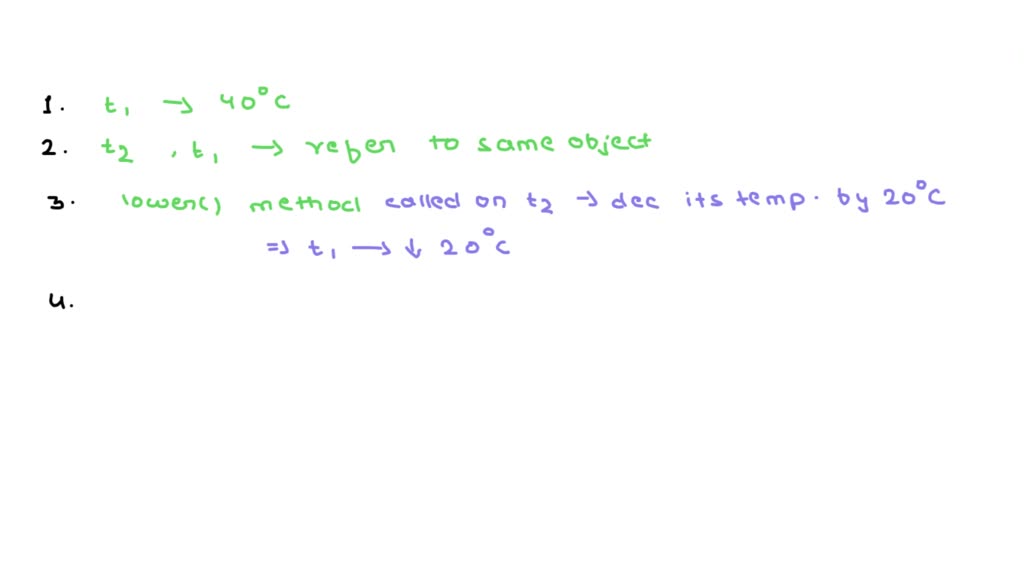 1. t1 → 40°C
2. t2, t1 → refer to same object
3. lower() method called on t2 → dec its temp. by 20°C
⇒ t1 → ↓ 20°C
4.